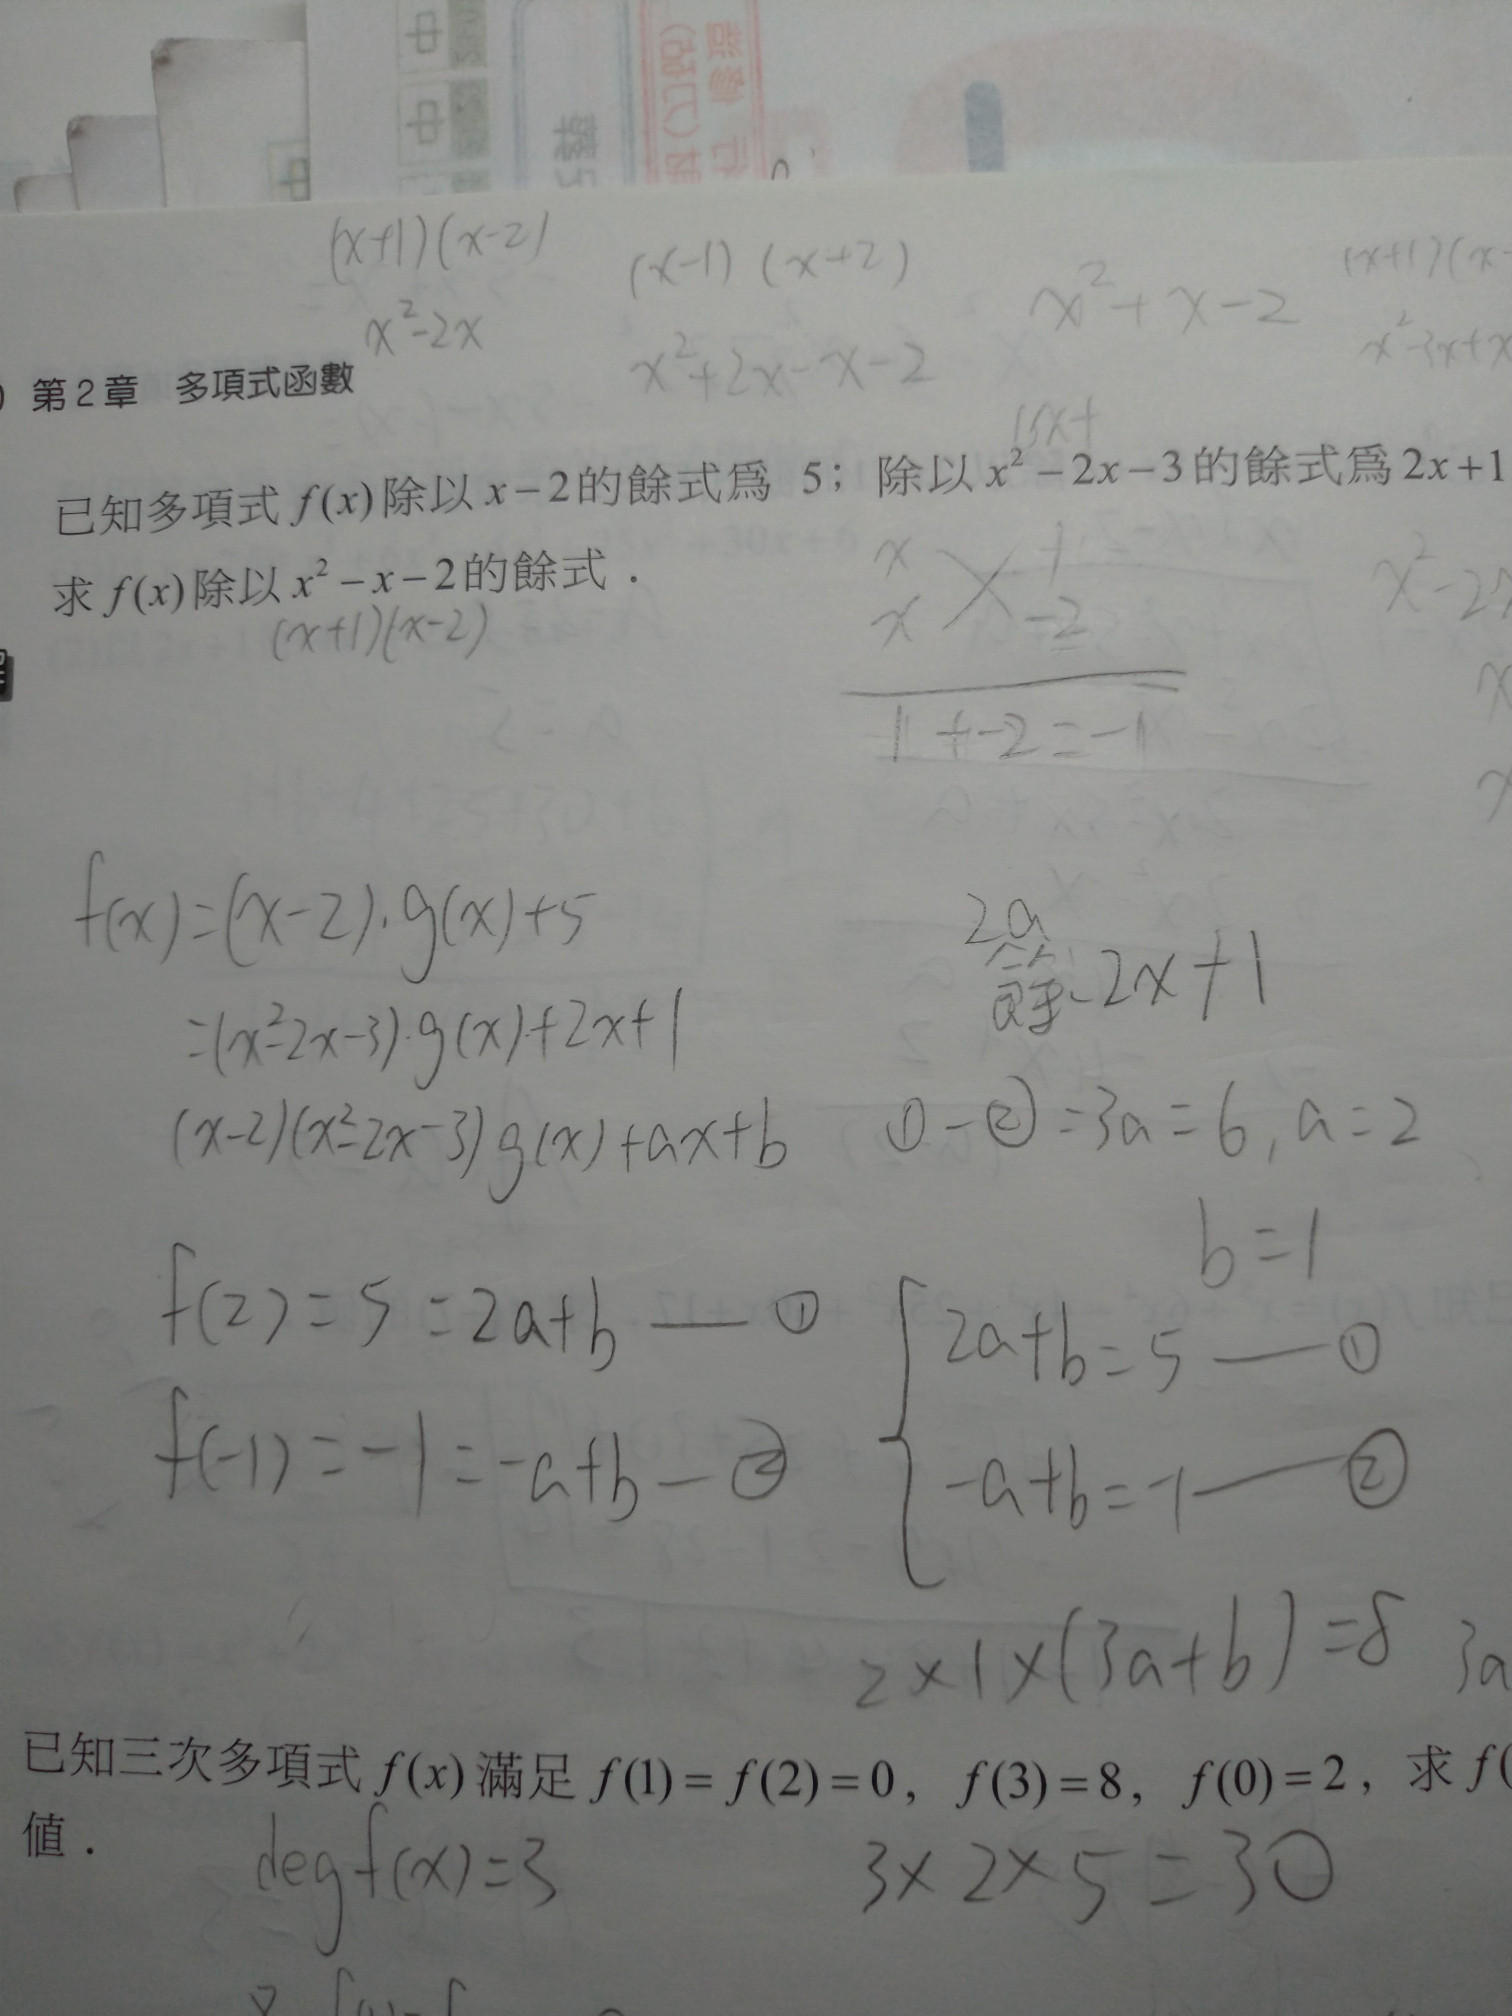 (x+1)(x-2)
(x-1) (x+2)
x²+x-2
x²-2x
x²+2x-x-2
第2章 多項式函數
已知多項式 f(x) 除以 x-2 的餘式為 5；除以 x²-2x-3 的餘式為 2x+1
求 f(x) 除以 x²-x-2 的餘式．
(x+1)(x-2)
x 1
x -2
1+-2=-1
f(x)=(x-2)·g(x)+5
2a
餘:2x+1
=(x²-2x-3)·g(x)+2x+1
(x-2)(x²-2x-3)g(x)+ax+b
①-②=3a=6, a=2
b=1
f(2)=5=2a+b—①
2a+b=5—①
f(-1)=-1=-a+b—②
-a+b=-1—②
2×1×(3a+b)=8
已知三次多項式 f(x) 滿足 f(1)= f(2)=0，f(3)=8，f(0)=2，求 f(
值．
deg f(x)=3
3×2×5=30